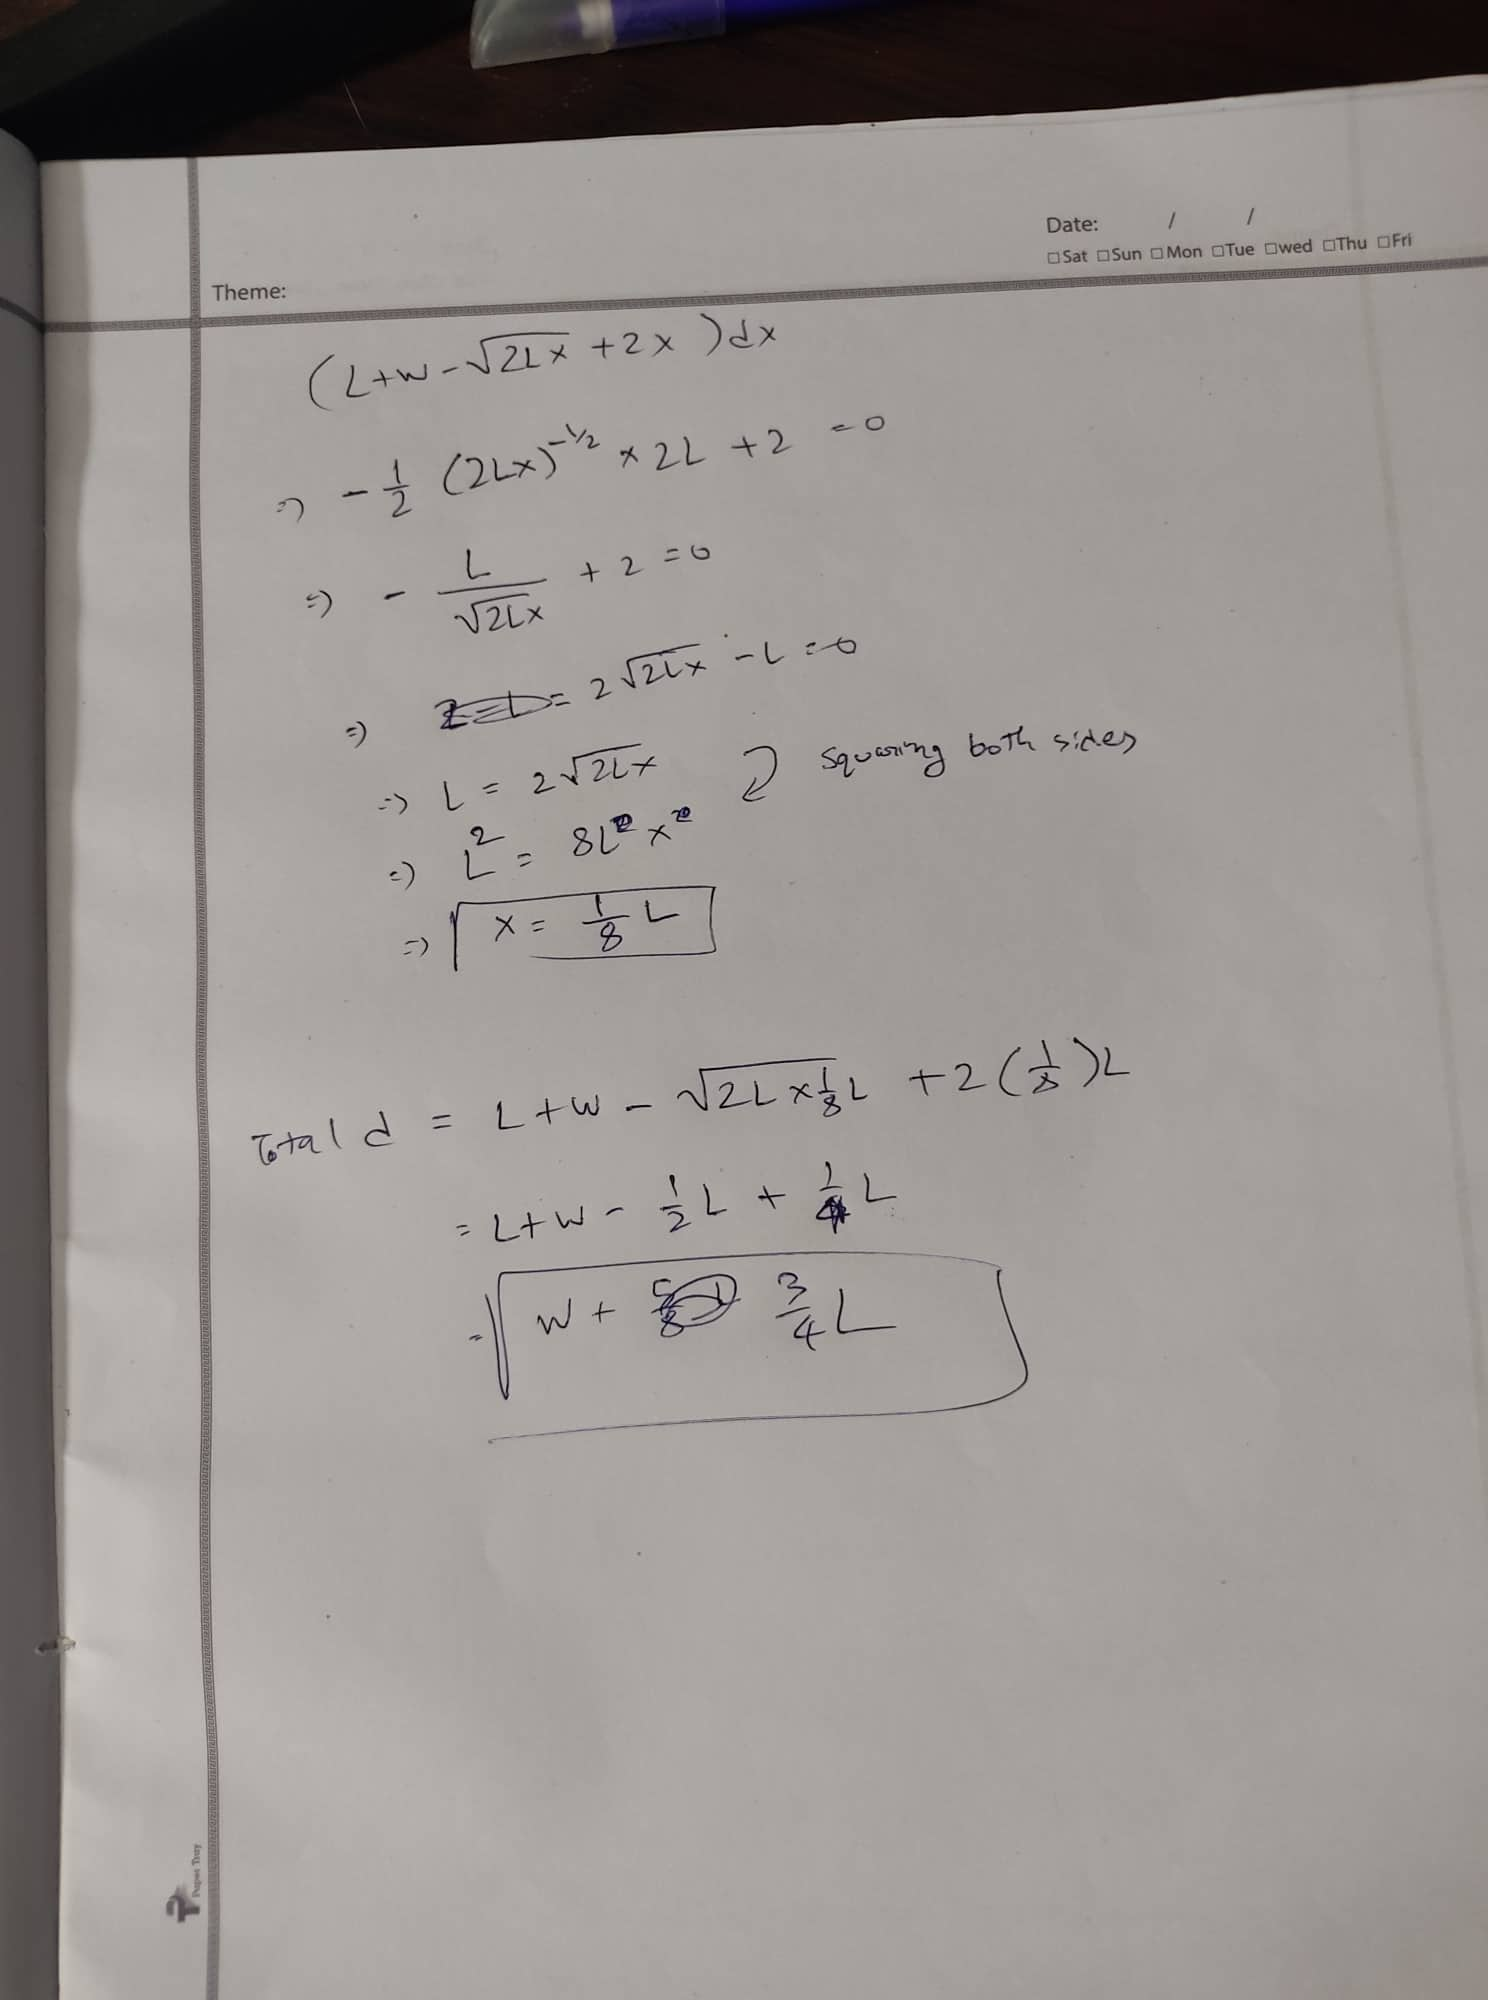 Date: / /
□Sat □Sun □Mon □Tue □wed □Thu □Fri
Theme:
(L+w-√2Lx +2x )dx
=> -1/2 (2Lx)^-1/2 × 2L +2 =0
=> - L/√2Lx + 2 =0
=> = 2√2Lx - L =0
=> L = 2√2Lx squaring both sides
=> L² = 8L x
=> x = 1/8 L
Total d = L+w - √2L×1/8L +2(1/8)L
= L+w - 1/2 L + 1/4 L
= w + 3/4 L
Paper Tray